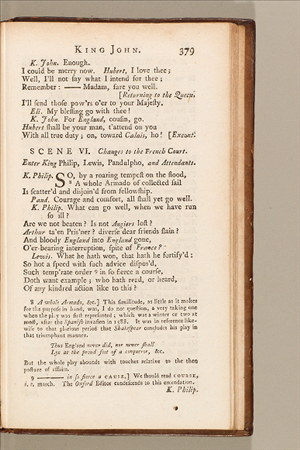 KING JOHN. 379
K. John. Enough.
I could be merry now. Hubert, I love thee;
Well, I'll not say what I intend for thee;
Remember: —— Madam, fare you well.
[Returning to the Queen.
I'll send those pow'rs o'er to your Majesty.
Eli. My blessing go with thee!
K. John. For England, cousin, go.
Hubert shall be your man, t'attend on you
With all true duty; on, toward Calais, ho! [Exeunt.
SCENE VI. Changes to the French Court.
Enter King Philip, Lewis, Pandulpho, and Attendants.
K. Philip. SO, by a roaring tempest on the flood,
8 A whole Armado of collected sail
Is scatter'd and disjoin'd from fellowship.
Pand. Courage and comfort, all shall yet go well.
K. Philip. What can go well, when we have run
so ill?
Are we not beaten? Is not Angiers lost?
Arthur ta'en Pris'ner? diverse dear friends slain?
And bloody England into England gone,
O'er-bearing interruption, spite of France?
Lewis. What he hath won, that hath he fortify'd:
So hot a speed with such advice dispos'd,
Such temp'rate order 9 in so fierce a course,
Doth want example; who hath read, or heard,
Of any kindred action like to this?
8 A whole Armado, &c.] This similitude, as little as it makes
for the purpose in hand, was, I do not question, a very taking one
when the play was first represented; which was a winter or two at
most, after the Spanish invasion in 1588. It was in reference like-
wise to that glorious period that Shakespear concludes his play in
that triumphant manner.
Thus England never did, nor never shall
Lye at the proud foot of a conqueror, &c.
But the whole play abounds with touches relative to the then
posture of affairs.
9 —— in so fierce a CAUSE.] We should read COURSE,
i. e. march. The Oxford Editor condescends to this emendation.
K. Philip.